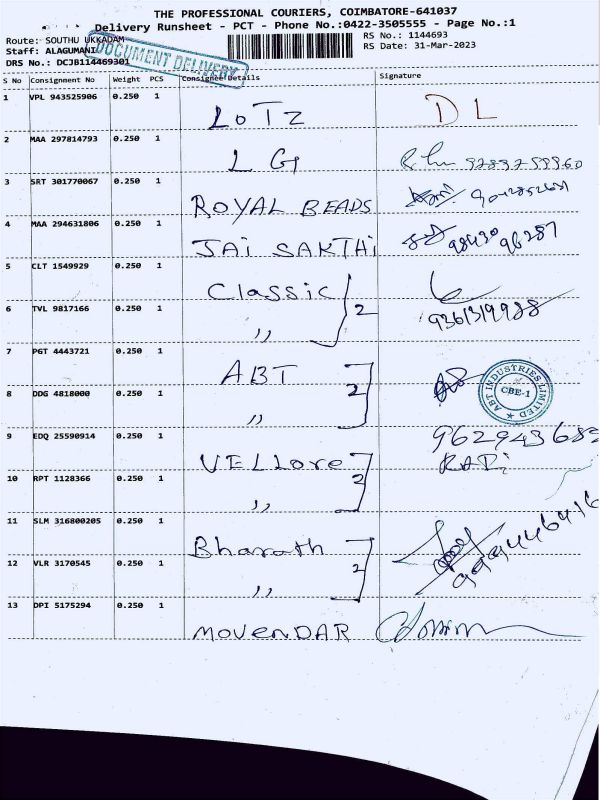 THE PROFESSIONAL COURIERS, COIMBATORE-641037
Delivery Runsheet - PCT - Phone No.:0422-3505555 - Page No.:1
Route: SOUTHU UKKADAM
RS No.: 1144693
Staff: ALAGUMANI
RS Date: 31-Mar-2023
DRS No.: DCJB114469301
DOCUMENT DELIVERY
S No Consignment No Weight PCS Consignee Details Signature
1 VPL 943525906 0.250 1 LOTZ DL
2 MAA 297814793 0.250 1 LG
3 SRT 301770067 0.250 1 ROYAL BEADS
4 MAA 294631806 0.250 1 JAI SAKTHI 98430 96287
5 CLT 1549929 0.250 1 Classic 2
6 TVL 9817166 0.250 1 ,, 9361319988
7 PGT 4443721 0.250 1 ABT 2
8 DDG 4818000 0.250 1 ,,
ABT INDUSTRIES LIMITED
CBE-1
9 EDQ 25590914 0.250 1 VELLore 2 962943683
RAVi
10 RPT 1128366 0.250 1 ,,
11 SLM 316800205 0.250 1 Bharath 2
12 VLR 3170545 0.250 1 ,,
13 DPI 5175294 0.250 1 MOVENDAR